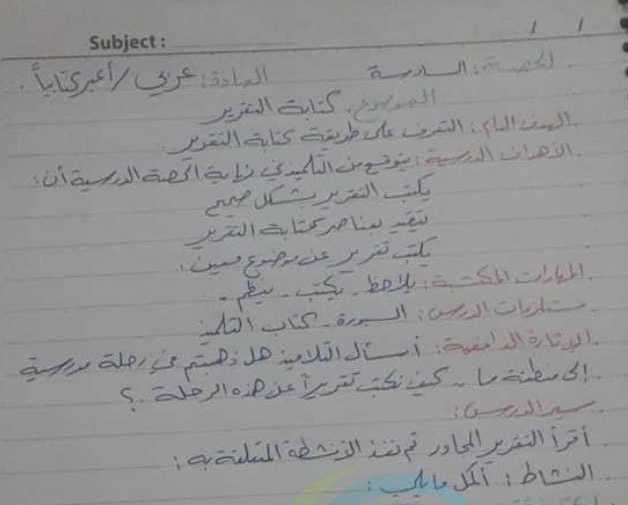 Subject :
/ /
الحصة : السادسة المادة : عربي / أعبر كتابياً .
الموضوع : كتابة التقرير
الهدف العام : التعرف على طريقة كتابة التقرير
الأهداف الدرسية : يتوقع من التلميذ في نهاية الحصة الدرسية أن :
يكتب التقرير بشكل صحيح
يتقيد بعناصر كتابة التقرير
يكتب تقرير عن موضوع معين .
المهارات المكتسبة : يلاحظ - يكتب - ينظم -
مستلزمات الدرس : السبورة - كتاب التلميذ
الإثارة الدافعية : أسأل التلاميذ هل ذهبتم في رحلة مدرسية
إلى منطقة ما .. كيف نكتب تقريراً عن هذه الرحلة .؟
سير الدرس :
أقرأ التقرير المجاور ثم نفذ الأنشطة المتعلقة به :
النشاط 1 : أكمل ما يلي :